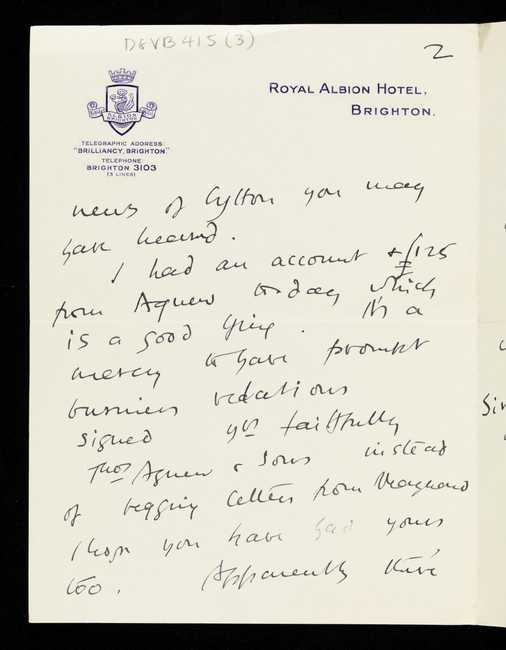 D&VB 415 (3)
2
ROYAL ALBION HOTEL,
BRIGHTON.
ALBION
TELEGRAPHIC ADDRESS:
"BRILLIANCY, BRIGHTON."
TELEPHONE:
BRIGHTON 3103
(3 LINES)
news of Lytton you may
have heard.
I had an account & £125
from Agnew to-day which
is a good thing. It's a
mercy to have prompt
business relations
signed yrs faithfully
Thos Agnew & Sons instead
of begging letters from Maynard
I hope you have had yours
too. Apparently